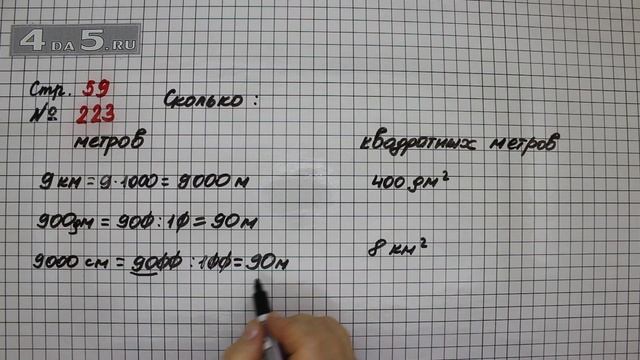 4DA5.RU
Стр. 59
№ 223
Сколько:
метров
9 км = 9·1000 = 9000 м
900дм = 900:10 = 90м
9000 см = 9000:100 = 90м
квадратных метров
400 дм²
8 км²